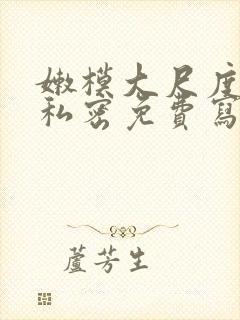 嫩模大尺度
私密免費寫
蘆芳生